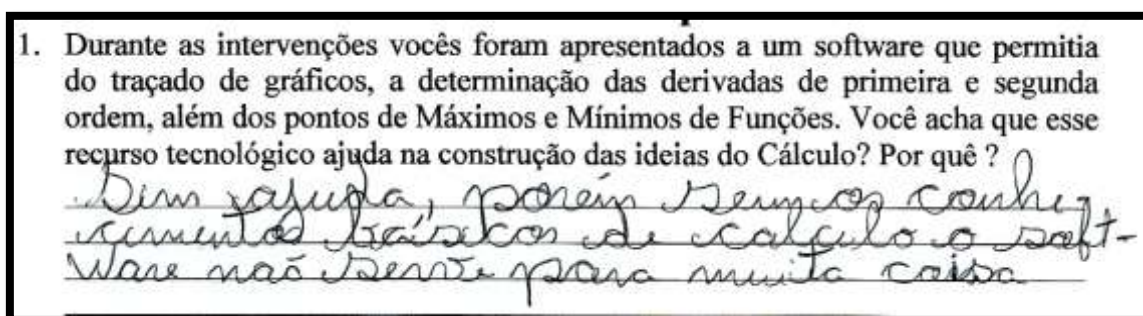 1. Durante as intervenções vocês foram apresentados a um software que permitia
do traçado de gráficos, a determinação das derivadas de primeira e segunda
ordem, além dos pontos de Máximos e Mínimos de Funções. Você acha que esse
recurso tecnológico ajuda na construção das ideias do Cálculo? Por quê ?
Sim ajuda, porém sem os conhe
cimentos básicos de calculo o soft-
ware não serve para muita coisa